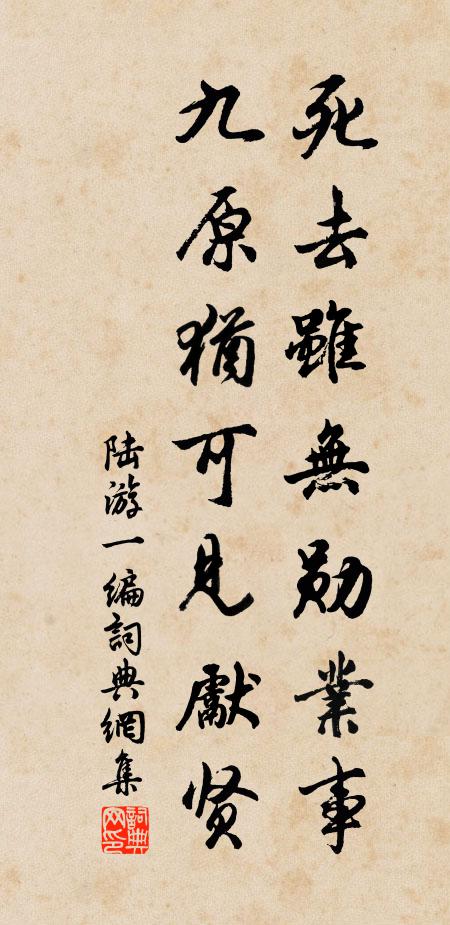 死去雖無勋業事
九原猶可見獻贤
陆游一编詞典網集
詞典网印